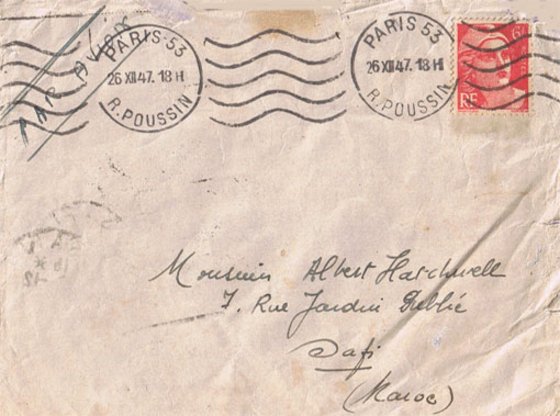 PAR AVION
PARIS-53
26 XII 47. 18 H
R. POUSSIN
PARIS 53
26 XII 47. 18 H
R. POUSSIN
6F
RF
Monsieur Albert Hatchwell
7. Rue Jardin Public
Safi
(Maroc)